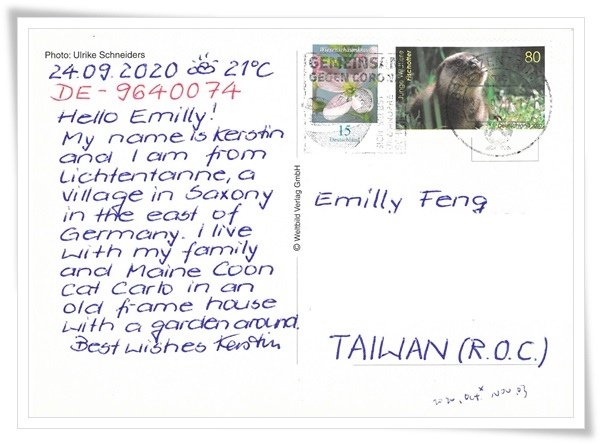 Photo: Ulrike Schneiders
24.09.2020 21°C
DE-9640074
Hello Emilly!
My name is Kerstin
and I am from
Lichtentanne, a
village in Saxony
in the east of
Germany. I live
with my family
and Maine Coon
cat Carlo in an
old frame house
with a garden around.
Best wishes Kerstin
© Weltbild Verlag GmbH
Wiesenschaumkraut
15
Deutschland
GEMEINSAM
GEGEN CORONA
Junge Wildtiere
Fischotter
80
Emilly Feng
TAIWAN (R.O.C.)
2020. Oct. Nov. 03